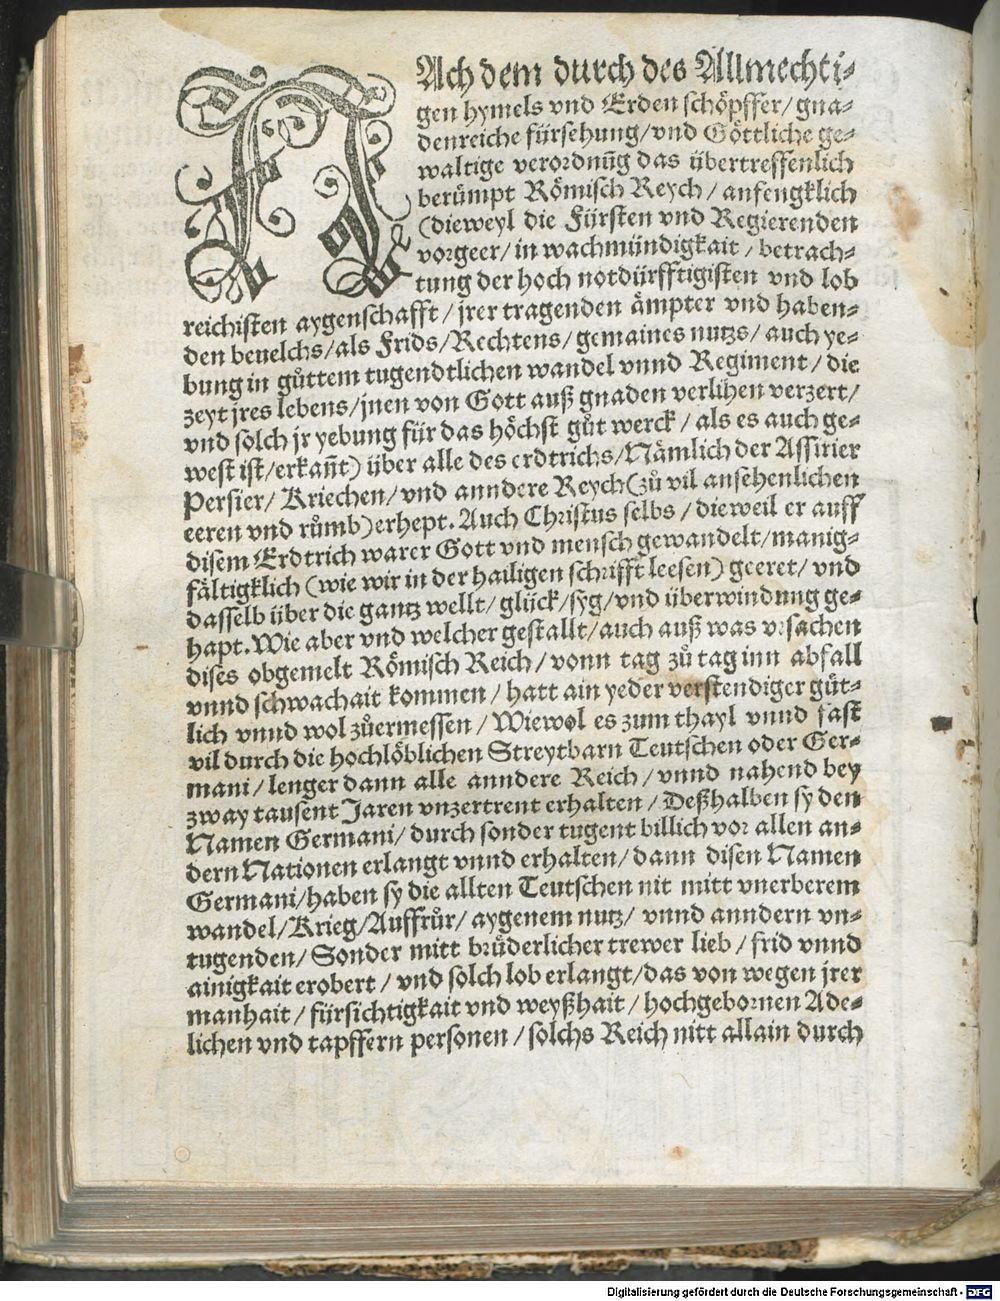 NAch dem durch des Allmechti⸗
gen hymels vnd Erden schöpffer/ gna⸗
denreiche fürsehung/vnd Göttliche ge⸗
waltige verordnūg das übertreffenlich
berůmpt Römisch Reych/ anfengklich
(dieweyl die Fürsten vnd Regierenden
vorgeer/ in wachmündigkait/ betrach⸗
tung der hoch notdürfftigisten vnd lob
reichisten aygenschafft/ jrer tragenden ämpter vnd haben⸗
den beuelchs/als Frids/Rechtens/gemaines nutzs/ auch ye⸗
bung in gůttem tugendtlichen wandel vnnd Regiment/ die
zeyt jres lebens/jnen von Gott auß gnaden verlihen verzert/
vnd solch jr yebung für das höchst gůt werck/ als es auch ge⸗
west ist/erkañt) über alle des erdtrichs/Nämlich der Assirier
Persier/ Kriechen/vnd anndere Reych(zů vil ansehenlichen
eeren vnd růmb)erhept. Auch Christus selbs/ dieweil er auff
disem Erdtrich warer Gott vnd mensch gewandelt/manig⸗
fältigklich (wie wir in der hailigen schrifft leesen) geeret/ vnd
dasselb über die gantz wellt/ glück/syg/vnd überwindung ge⸗
hapt. Wie aber vnd welcher gestallt/auch auß was vrsachen
dises obgemelt Römisch Reich/ vonn tag zů tag inn abfall
vnnd schwachait kommen/ hatt ain yeder verstendiger gůt⸗
lich vnnd wol zůermessen/ Wiewol es zum thayl vnnd fast
vil durch die hochlöblichen Streytbarn Teutschen oder Ger⸗
mani/ lenger dann alle anndere Reich/ vnnd nahend bey
zway tausent Jaren vnzertrent erhalten/ Deßhalben sy den
Namen Germani/ durch sonder tugent billich vor allen an⸗
dern Nationen erlangt vnnd erhalten/ dann disen Namen
Germani/haben sy die allten Teutschen nit mitt vnerberem
wandel/Krieg/Auffrůr/ aygenem nutz/ vnnd anndern vn⸗
tugenden/ Sonder mitt brůderlicher trewer lieb/ frid vnnd
ainigkait erobert/ vnd solch lob erlangt/das von wegen jrer
manhait/ fürsichtigkait vnd weyßhait/ hochgebornen Ade⸗
lichen vnd tapffern personen/ solchs Reich nitt allain durch
Digitalisierung gefördert durch die Deutsche Forschungsgemeinschaft - DFG